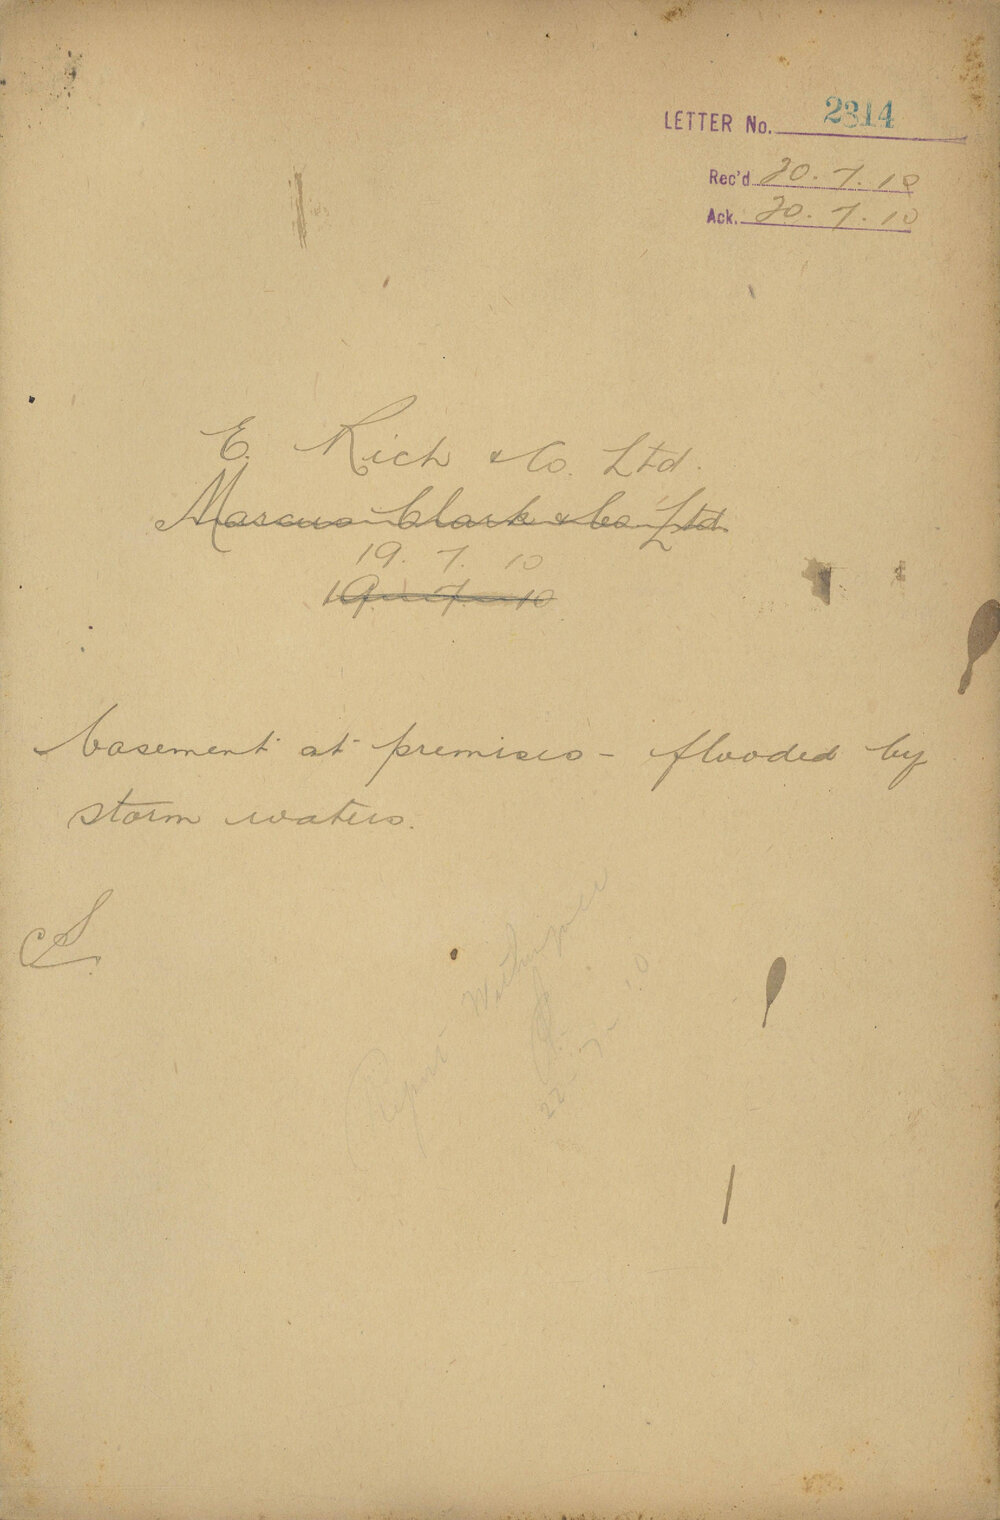 LETTER No. 2314
Rec'd 20.7.10
Ack. 20.7.10
E. Rich & Co. Ltd.
Marcus Clark & Co Ltd
19. 7. 10
19. 7. 10
basement at premises - flooded by
storm waters.
Report
22-7-10